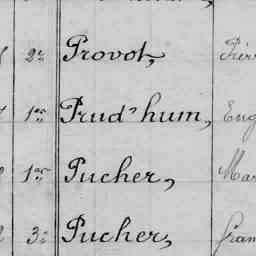 2e Provot,
1er Prud'hum, Eug
1er Pucher, Mar
3e Pucher, Fran